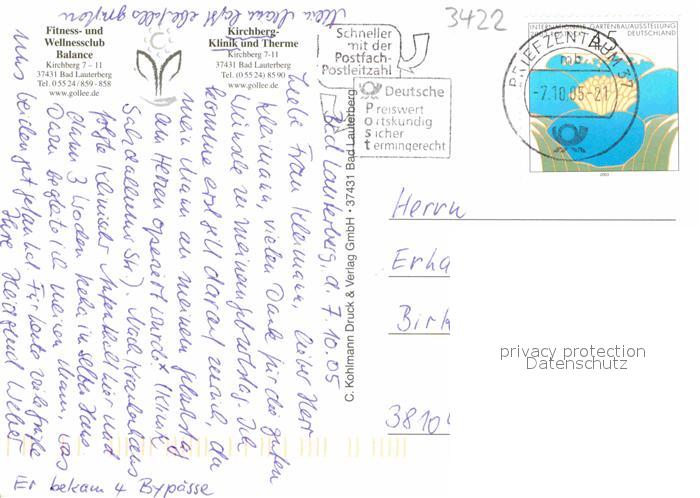 3422
Fitness- und
Wellnessclub
Balance
Kirchberg 7 – 11
37431 Bad Lauterberg
Tel. 0 55 24 / 859 - 858
www.gollee.de
Kirchberg-
Klinik und Therme
Kirchberg 7-11
37431 Bad Lauterberg
Tel. (0 55 24) 85 90
www.gollee.de
Schneller
mit der
Postfach-
Postleitzahl
Deutsche
Preiswert
Ortskundig
Sicher
termingerecht
INTERNATIONALE GARTENBAUAUSSTELLUNG
DEUTSCHLAND
45
BRIEFZENTRUM 37
mb
-7.10.05-21
2003
Bad Lauterberg, d. 7.10.05
Liebe Frau Kleimann, lieber Herr
Kleimann, vielen Dank für die guten
Wünsche zu meinem Geburtstag. Ich
komme erst jetzt darauf zurück, da
mein Mann an meinem Geburtstag
am Herzen operiert wurde* (Klinik
Salzdahlumer Str.). Nach Krankenhaus
folgte klinischer Aufenthalt hier und
dann 3 Wochen Reha in selben Haus
Dazu begleite ich meinen Mann, was
uns beiden gut gefallen hat. Für heute viele Grüße
Ihre Heidgund Weber
Mein Mann läßt ebenfalls grüßen
Er bekam 4 Bypässe
C. Kohlmann Druck & Verlag GmbH • 37431 Bad Lauterberg
Herrn
Erha
Birk
3810
privacy protection
Datenschutz